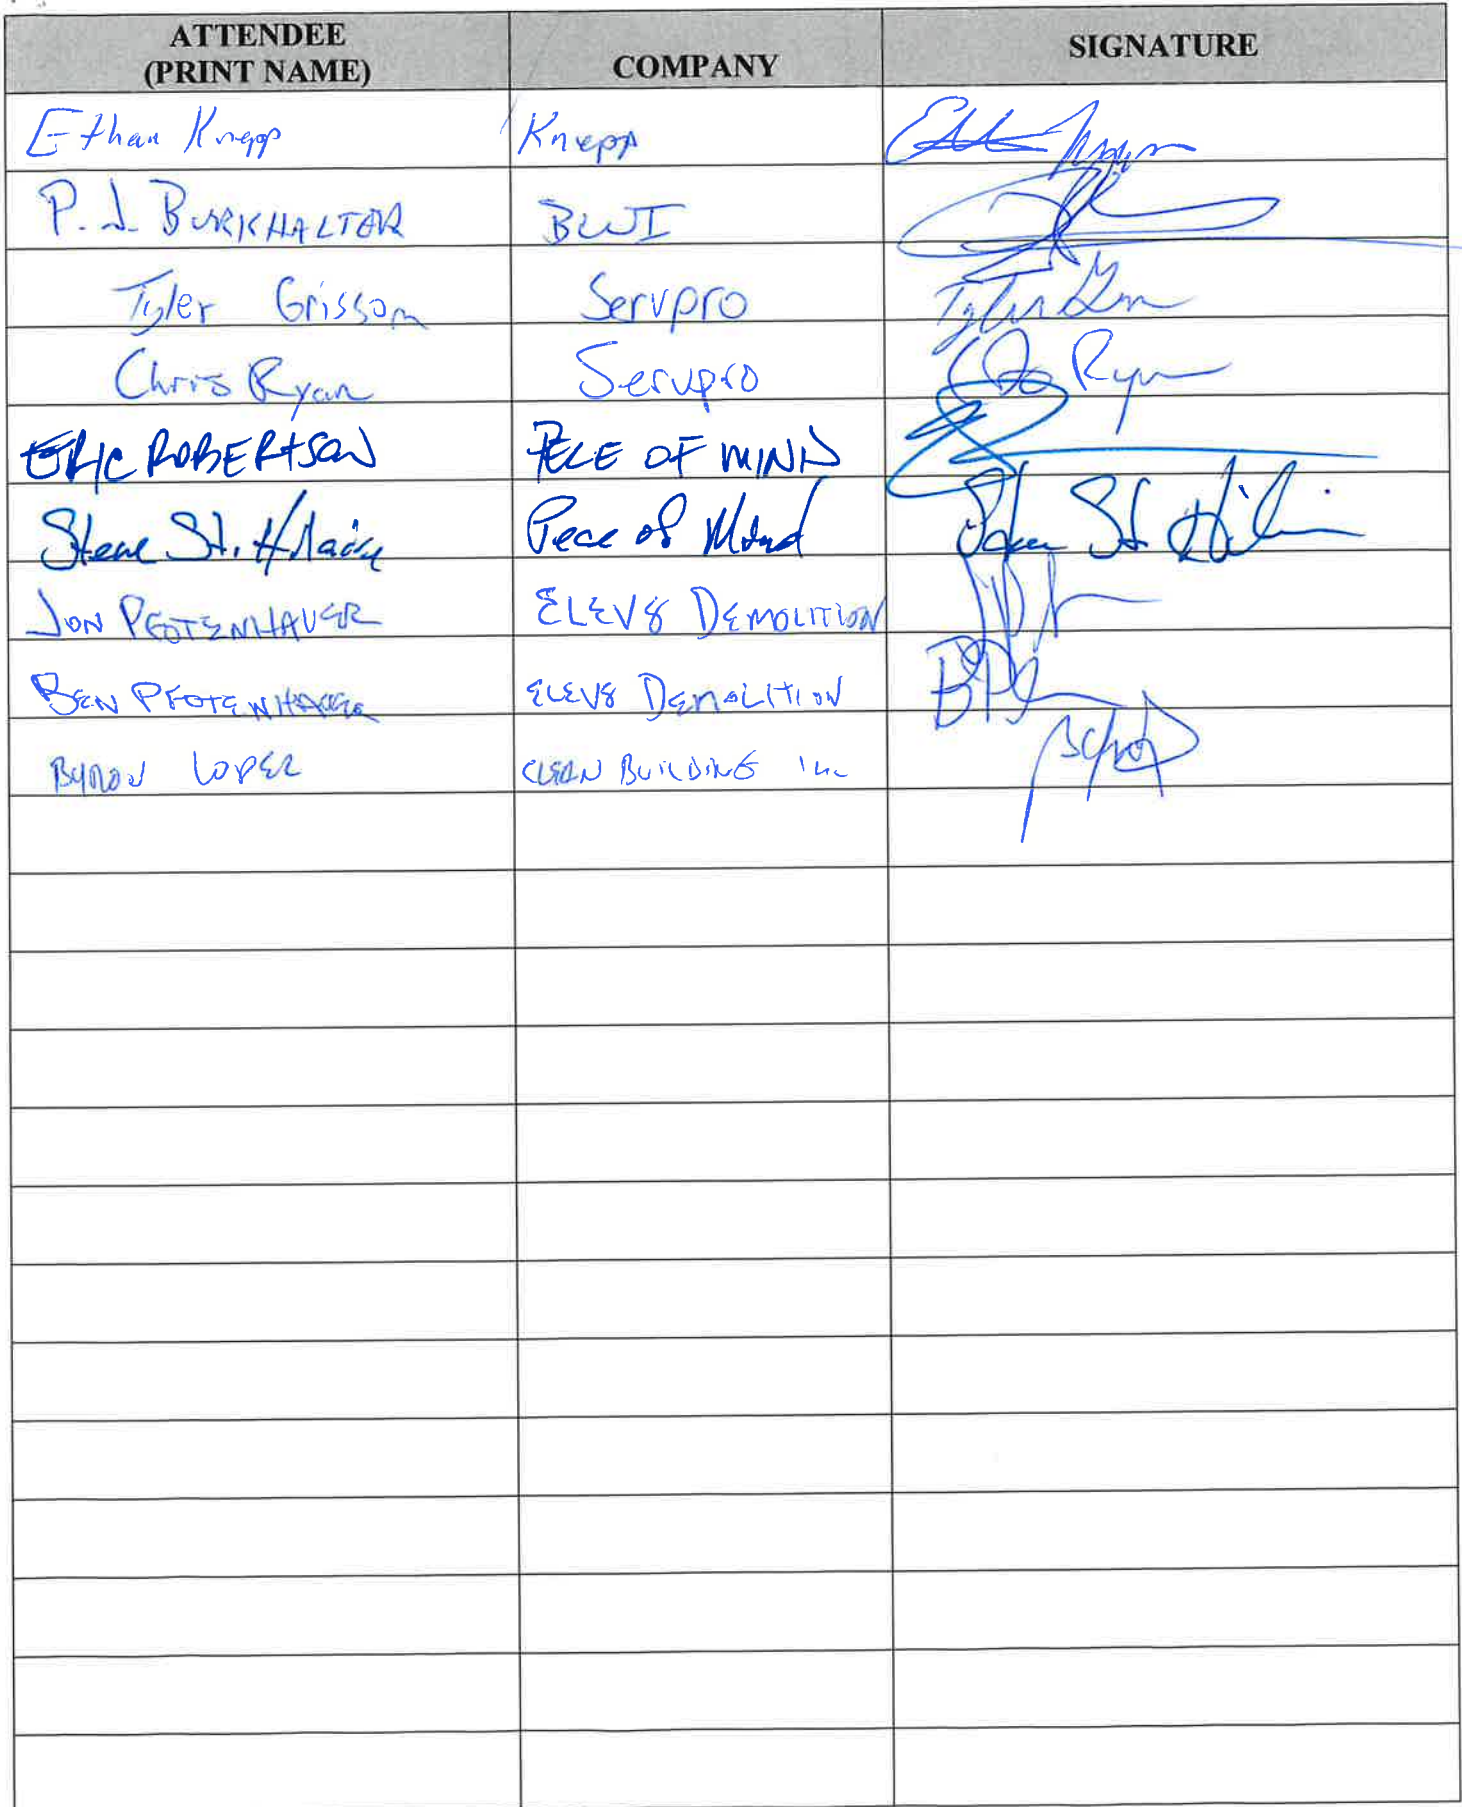 ATTENDEE
(PRINT NAME) COMPANY SIGNATURE
Ethan Knepp Knepp
P.J. BURKHALTER BWI
Tyler Grissom Servpro Tyler
Chris Ryan Servpro Ryan
ERIC ROBERTSON PECE OF MIND
Steve St. Hilaire Pece of Mind St
JON PFOTENHAUER ELEV8 DEMOLITION
BEN PFOTENHAUER ELEV8 DEMOLITION
BYRON LOPEZ CLEAN BUILDING Inc